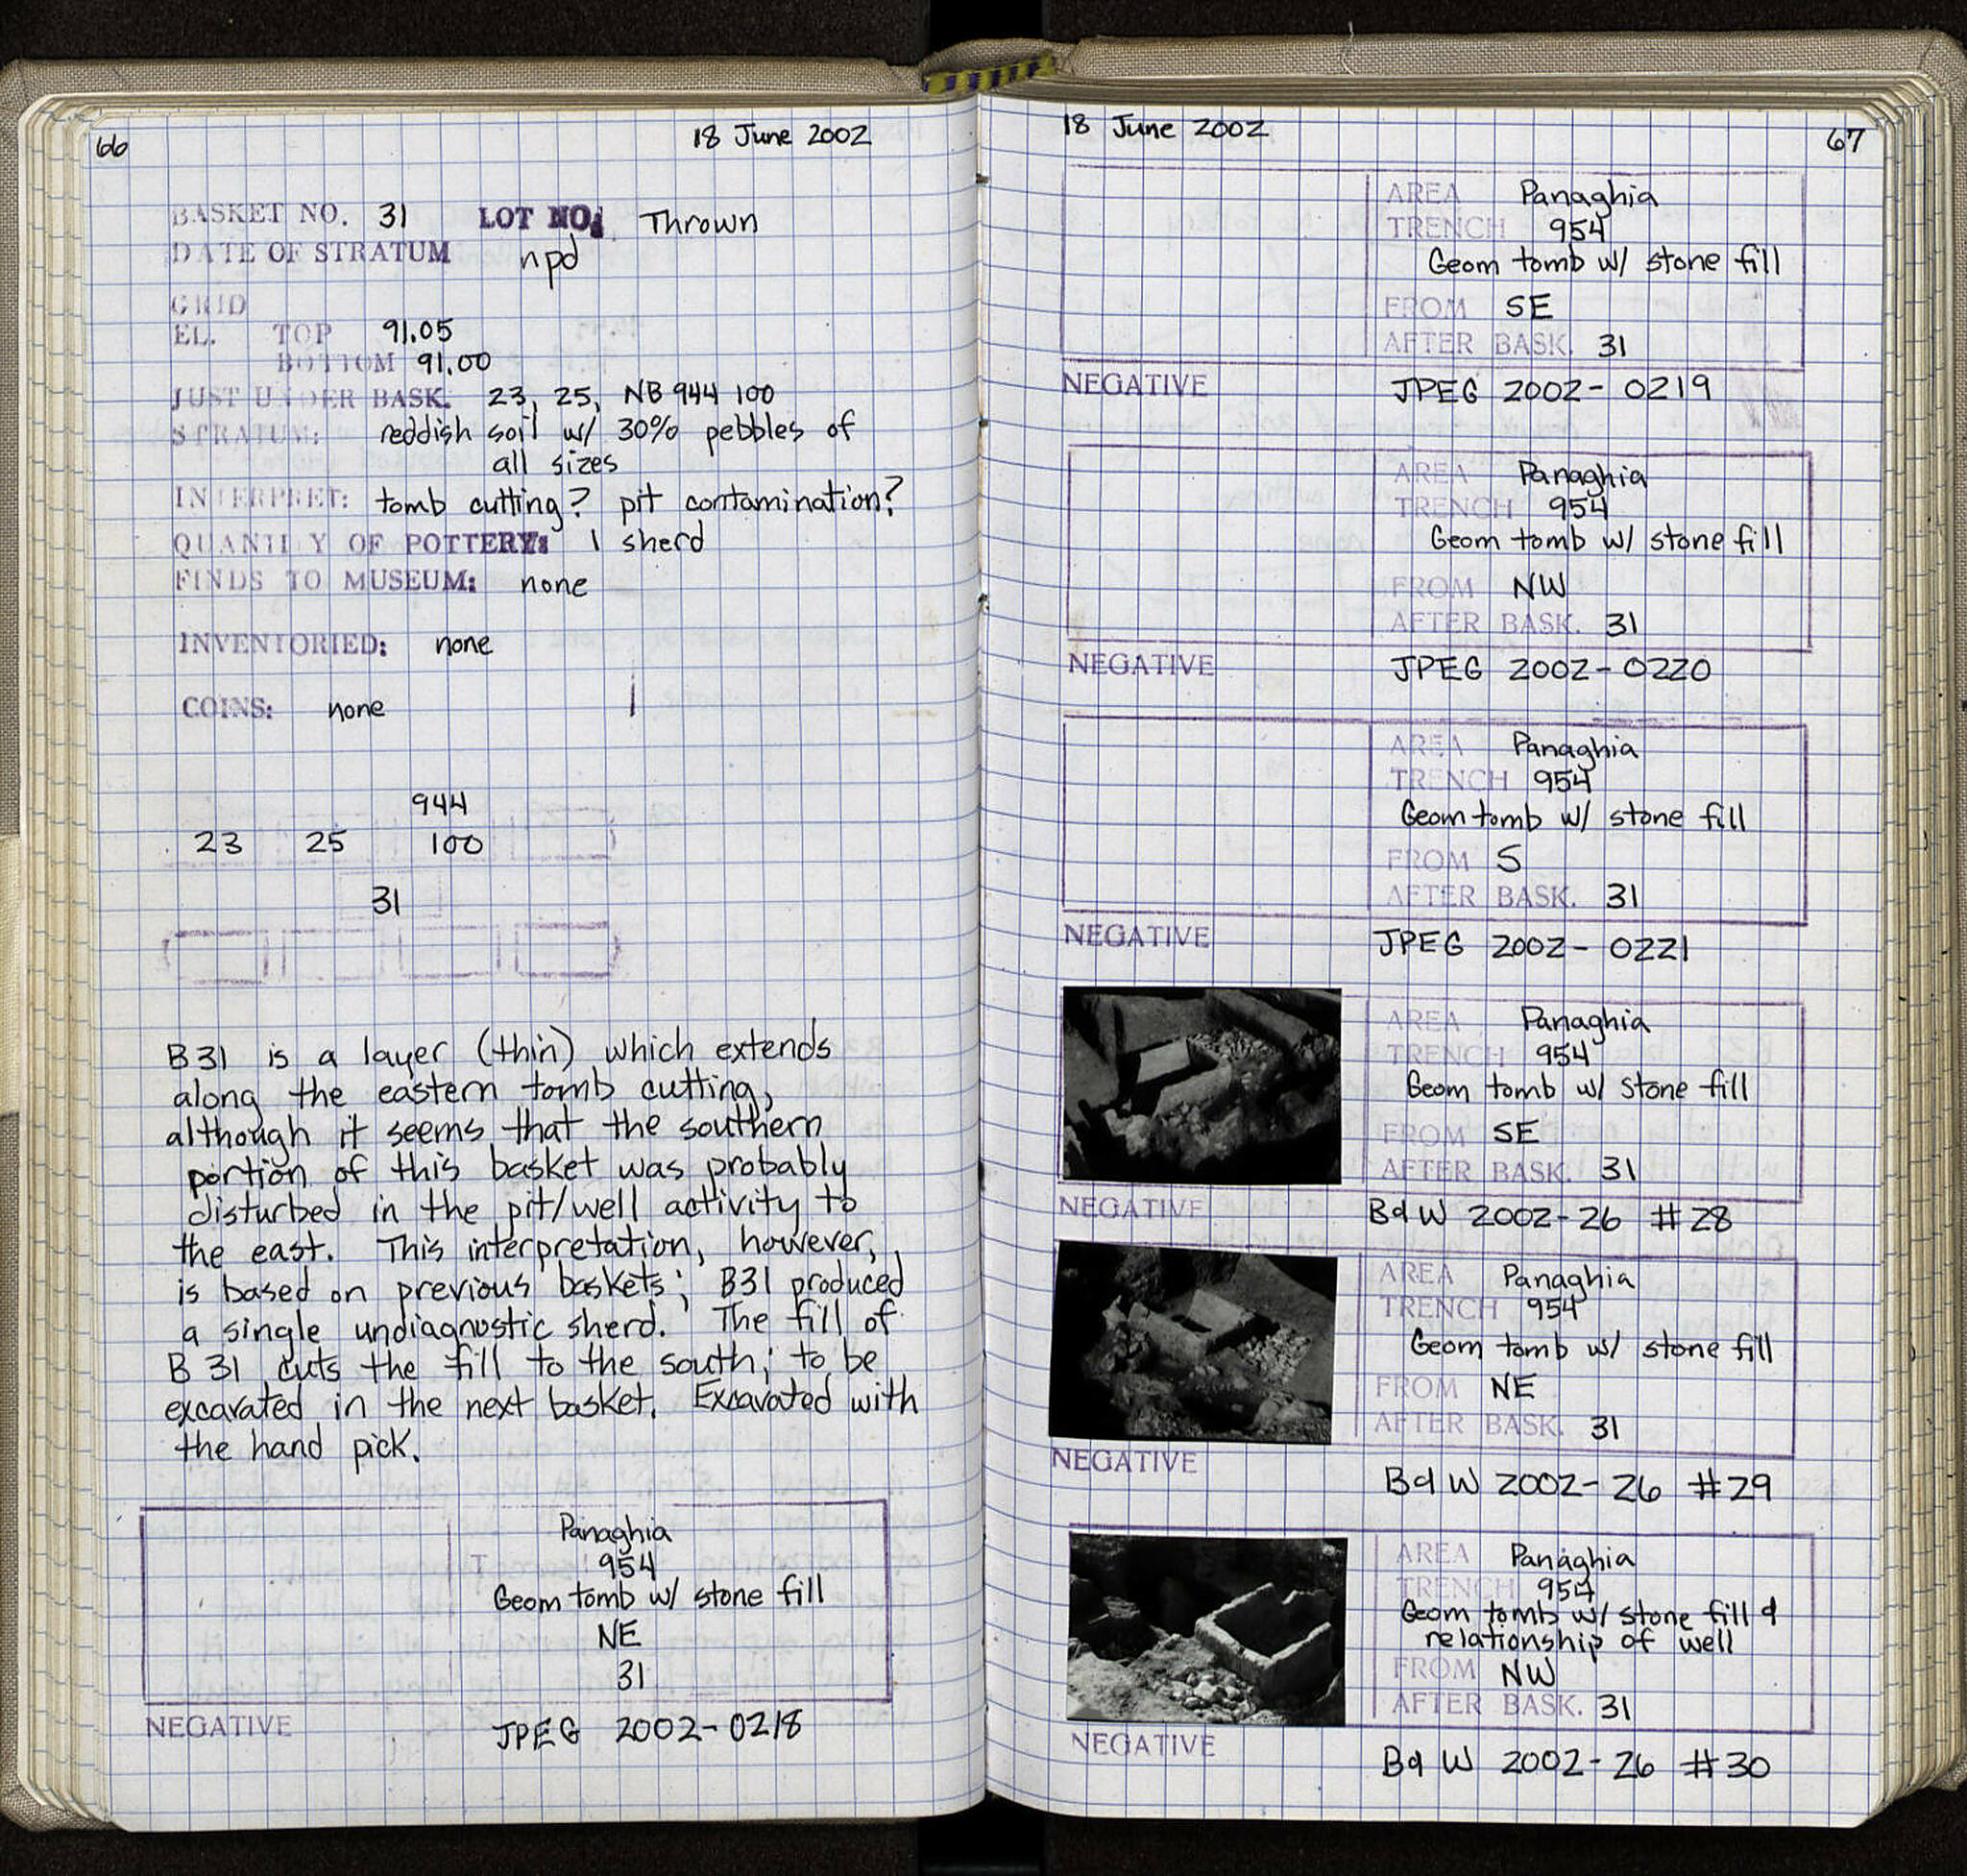 66
18 June 2002
BASKET NO. 31 LOT NO. Thrown
DATE OF STRATUM npd
GRID
EL. TOP 91.05
BOTTOM 91.00
JUST UNDER BASK. 23, 25, NB 944 100
STRATUM: reddish soil w/ 30% pebbles of
all sizes
INTERPRET: tomb cutting? pit contamination?
QUANTITY OF POTTERY: 1 sherd
FINDS TO MUSEUM: none
INVENTORIED: none
COINS: none
944
23 25 100
31
B31 is a layer (thin) which extends
along the eastern tomb cutting,
although it seems that the southern
portion of this basket was probably
disturbed in the pit/well activity to
the east. This interpretation, however,
is based on previous baskets; B31 produced
a single undiagnostic sherd. The fill of
B 31 cuts the fill to the south; to be
excavated in the next basket. Excavated with
the hand pick.
Panaghia
T 954
Geom tomb w/ stone fill
NE
31
NEGATIVE JPEG 2002-0218
18 June 2002
67
AREA Panaghia
TRENCH 954
Geom tomb w/ stone fill
FROM SE
AFTER BASK. 31
NEGATIVE JPEG 2002-0219
AREA Panaghia
TRENCH 954
Geom tomb w/ stone fill
FROM NW
AFTER BASK. 31
NEGATIVE JPEG 2002-0220
AREA Panaghia
TRENCH 954
Geom tomb w/ stone fill
FROM S
AFTER BASK. 31
NEGATIVE JPEG 2002-0221
AREA Panaghia
TRENCH 954
Geom tomb w/ stone fill
FROM SE
AFTER BASK. 31
NEGATIVE B&W 2002-26 #28
AREA Panaghia
TRENCH 954
Geom tomb w/ stone fill
FROM NE
AFTER BASK. 31
NEGATIVE B&W 2002-26 #29
AREA Panaghia
TRENCH 954
Geom tomb w/ stone fill &
relationship of well
FROM NW
AFTER BASK. 31
NEGATIVE B&W 2002-26 #30